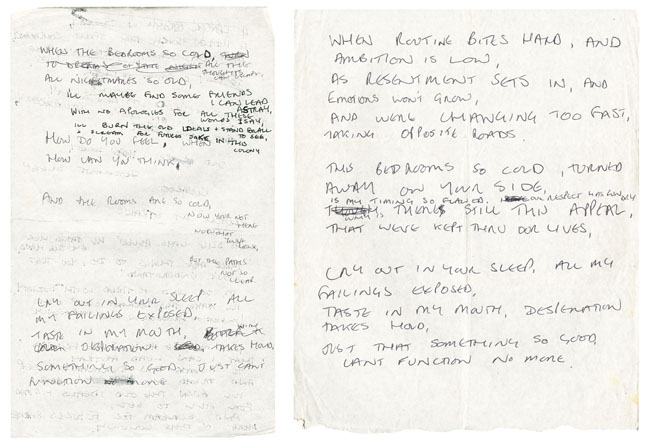 WHEN THE BEDROOMS SO COLD,
TO ALL THE
THOUGHTS
ALL NIGHTMARES SO OLD,
ILL MAYBE FIND SOME FRIENDS
I CAN LEAD
ASTRAY,
WITH NO APOLOGIES FOR ALL THESE
WORDS I SAY,
ILL BURN THE OLD IDEALS + STAND BY ALL
TO SEE,
+ SCREAM FOR FUTURES SAKE
HOW DO YOU FEEL, WHEN IN THIS
COLONY
HOW CAN YOU THINK,
AND THE ROOMS ARE SO COLD,
NOW YOUR NOT
HERE
BUT THE PATHS
NOT SO
CLEAR
CRY OUT IN YOUR SLEEP ALL
MY FAILINGS EXPOSED,
TASTE IN MY MOUTH,
DESPERATION TAKES HOLD,
SOMETHING SO GOOD JUST CANT
FUNCTION NO MORE
WHEN ROUTINE BITES HARD, AND
AMBITION IS LOW,
AS RESENTMENT SETS IN, AND
EMOTIONS WONT GROW,
AND WERE CHANGING TOO FAST,
TAKING OPPOSITE ROADS.
THIS BEDROOMS SO COLD, TURNED
AWAY ON YOUR SIDE,
IS MY TIMING SO FLAWED. OUR RESPECT RUNS DRY
THERES STILL THIS APPEAL,
THAT WE'VE KEPT THRU OUR LIVES,
CRY OUT IN YOUR SLEEP, ALL MY
FAILINGS EXPOSED,
TASTE IN MY MOUTH, DESPERATION
TAKES HOLD,
JUST THAT SOMETHING SO GOOD,
CANT FUNCTION NO MORE.